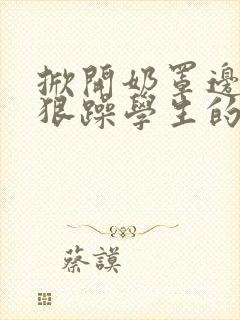 掀開奶罩邊
狠躁學生的
蔡謨